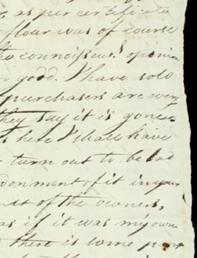 as per certificate
flour was of course
to connoisseurs opinion
or good. I have sold
purchasers are very
they say it is gone
is here I shall have
turn out to be bad
donment of it in your
et of the owners,
as if it was my own
there is some